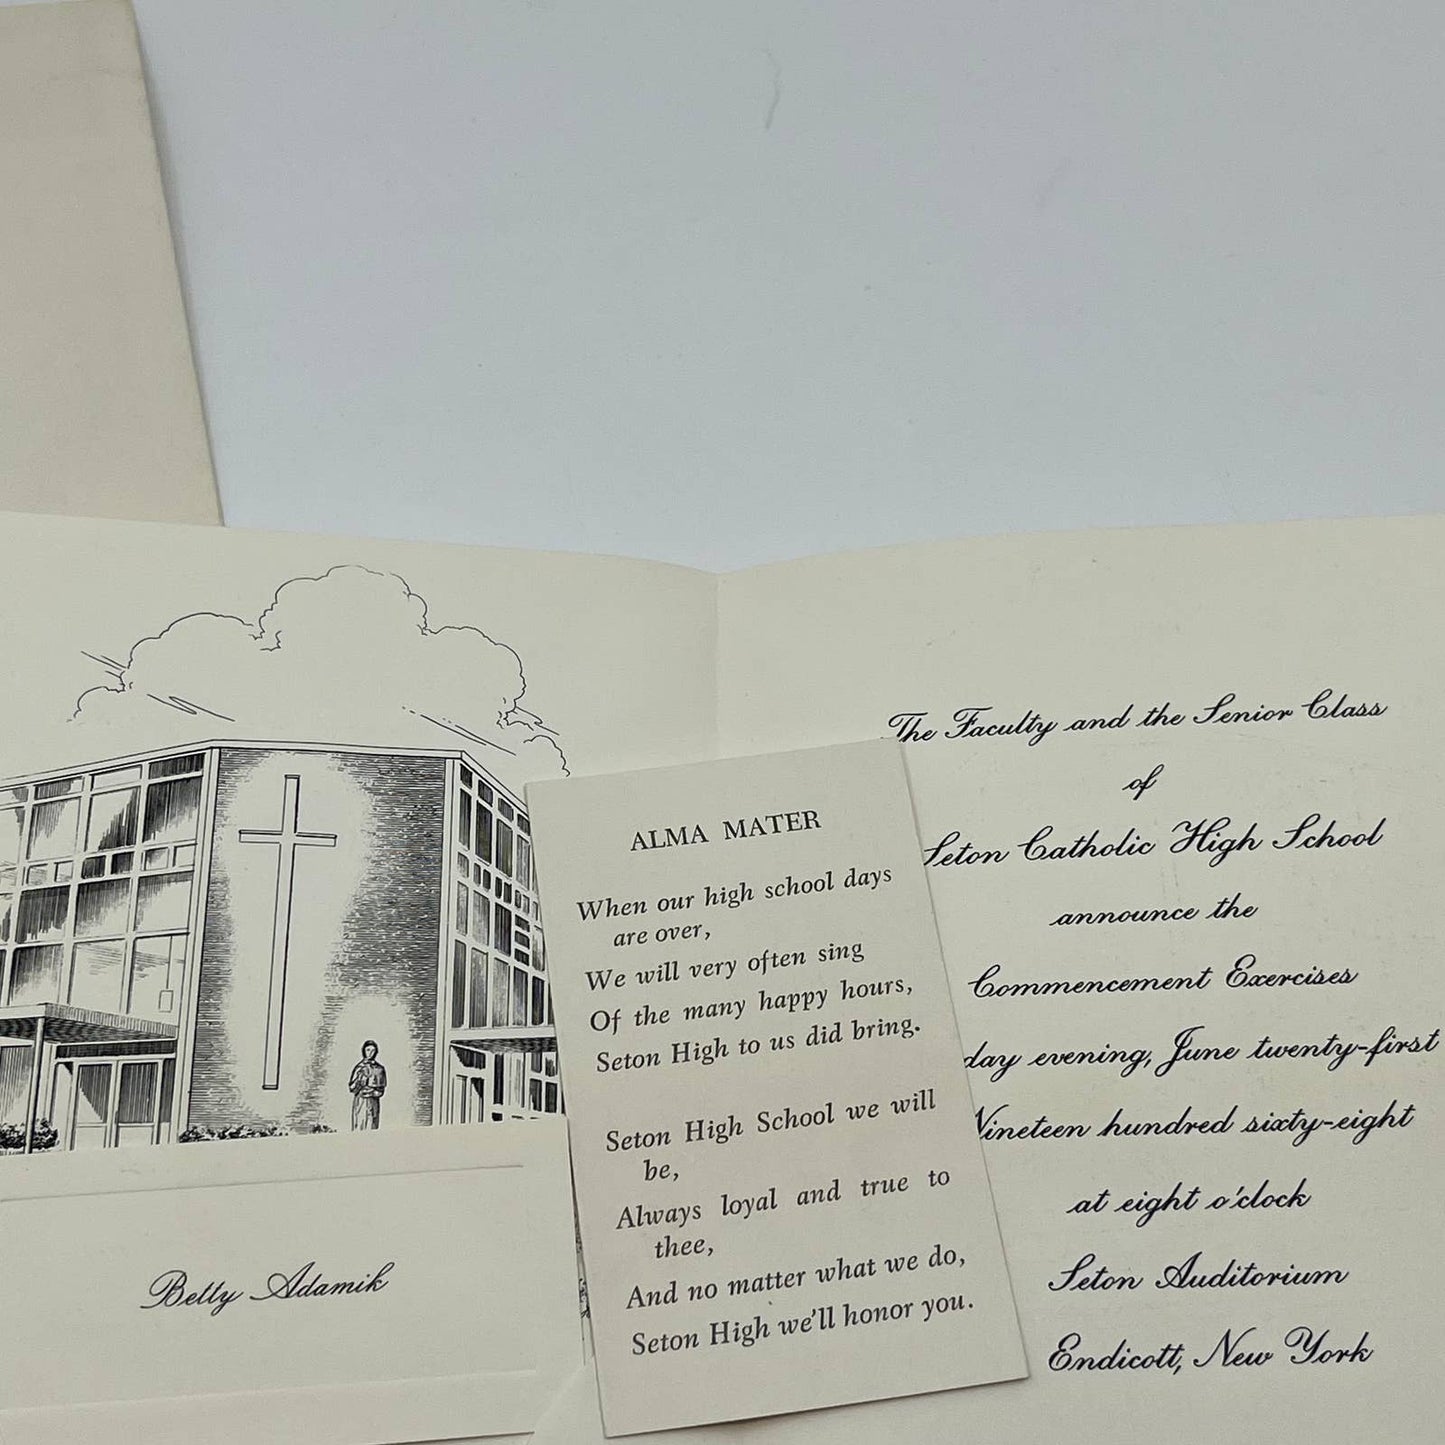 Betty Adamik
ALMA MATER
When our high school days
are over,
We will very often sing
Of the many happy hours,
Seton High to us did bring.
Seton High School we will
be,
Always loyal and true to
thee,
And no matter what we do,
Seton High we'll honor you.
The Faculty and the Senior Class
of
Seton Catholic High School
announce the
Commencement Exercises
day evening, June twenty-first
Nineteen hundred sixty-eight
at eight o'clock
Seton Auditorium
Endicott, New York